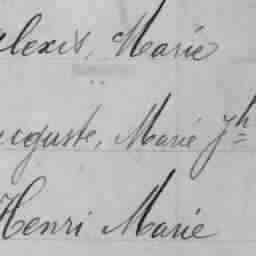 alexis, Marie
uguste, Marie Jh
Henri Marie